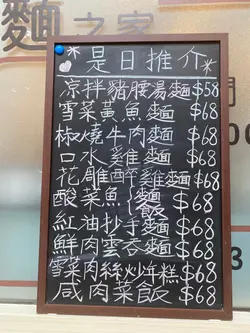 麵之家
*是日推介*
涼拌豬腰湯麵$58
雪菜黃魚麵 $68
椒燒牛肉麵 $68
口水雞麵 $68
花雕醉雞麵$68
酸菜魚麵/飯$68
紅油抄手麵$68
鮮肉雲吞麵$68
雪菜肉絲炒年糕$68
咸肉菜飯 $68